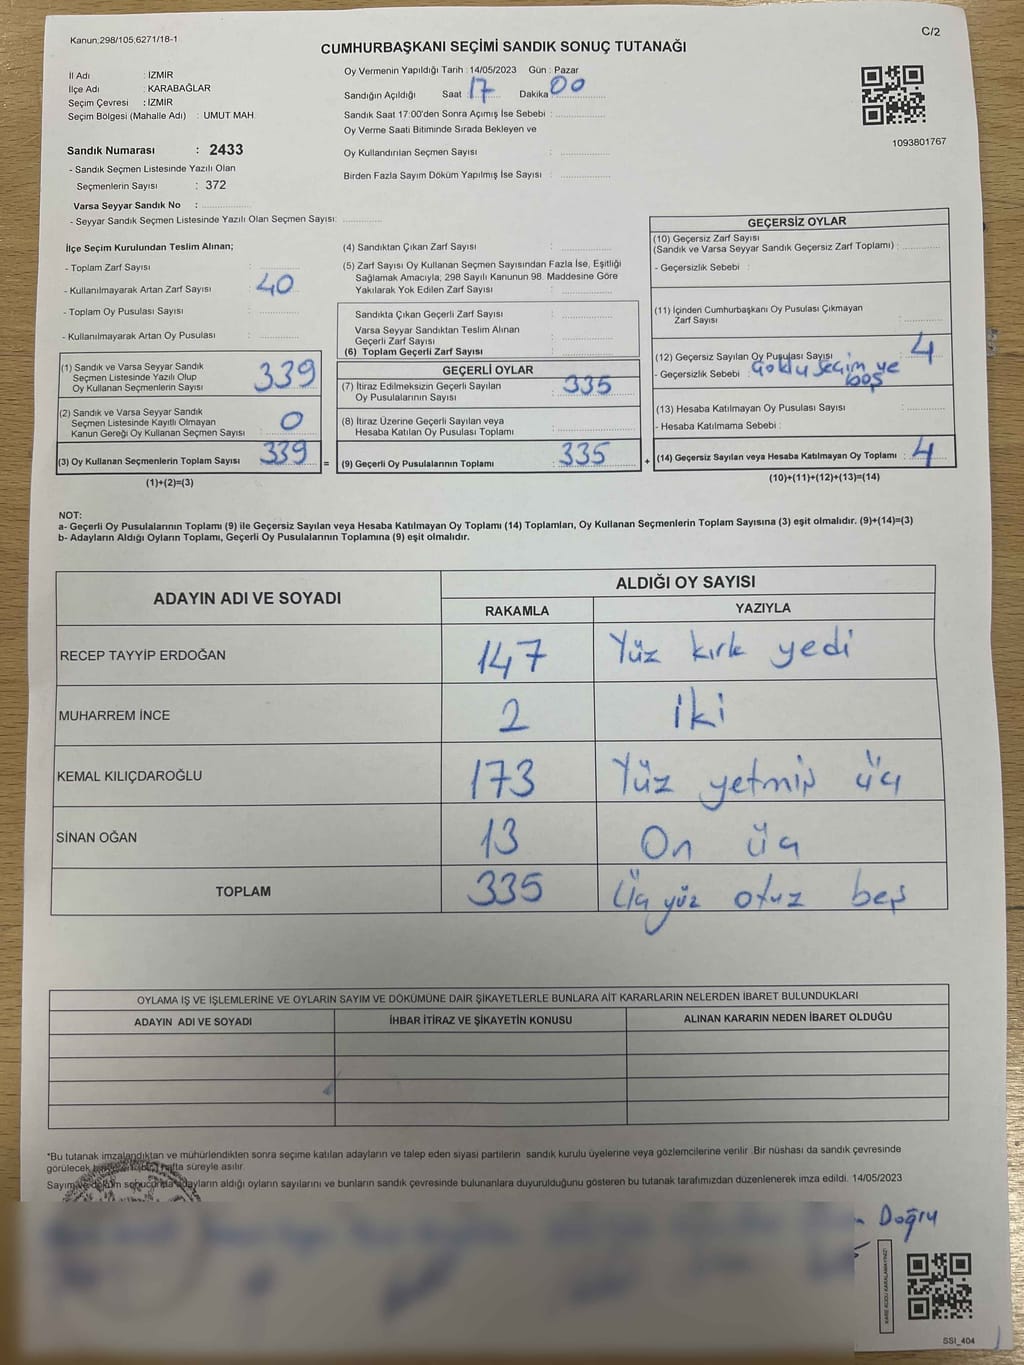 Kanun,298/105,6271/18-1
C/2
CUMHURBAŞKANI SEÇİMİ SANDIK SONUÇ TUTANAĞI
İl Adı : İZMİR
İlçe Adı : KARABAĞLAR
Seçim Çevresi : İZMİR
Seçim Bölgesi (Mahalle Adı) : UMUT MAH.
Oy Vermenin Yapıldığı Tarih : 14/05/2023 Gün : Pazar
Sandığın Açıldığı Saat : 17 Dakika 00
Sandık Saat 17:00'den Sonra Açımış İse Sebebi :
Oy Verme Saati Bitiminde Sırada Bekleyen ve
Oy Kullandırılan Seçmen Sayısı :
Birden Fazla Sayım Döküm Yapılmış İse Sayısı :
1093801767
Sandık Numarası : 2433
- Sandık Seçmen Listesinde Yazılı Olan
Seçmenlerin Sayısı : 372
Varsa Seyyar Sandık No :
- Seyyar Sandık Seçmen Listesinde Yazılı Olan Seçmen Sayısı:
İlçe Seçim Kurulundan Teslim Alınan;
- Toplam Zarf Sayısı :
- Kullanılmayarak Artan Zarf Sayısı : 40
- Toplam Oy Pusulası Sayısı :
- Kullanılmayarak Artan Oy Pusulası :
(1) Sandık ve Varsa Seyyar Sandık
Seçmen Listesinde Yazılı Olup
Oy Kullanan Seçmenlerin Sayısı 339
(2) Sandık ve Varsa Seyyar Sandık
Seçmen Listesinde Kayıtlı Olmayan
Kanun Gereği Oy Kullanan Seçmen Sayısı 0
(3) Oy Kullanan Seçmenlerin Toplam Sayısı 339 =
(1)+(2)=(3)
(4) Sandıktan Çıkan Zarf Sayısı :
(5) Zarf Sayısı Oy Kullanan Seçmen Sayısından Fazla İse, Eşitliği
Sağlamak Amacıyla, 298 Sayılı Kanunun 98. Maddesine Göre
Yakılarak Yok Edilen Zarf Sayısı :
Sandıkta Çıkan Geçerli Zarf Sayısı :
Varsa Seyyar Sandıktan Teslim Alınan
Geçerli Zarf Sayısı :
(6) Toplam Geçerli Zarf Sayısı :
GEÇERLİ OYLAR
(7) İtiraz Edilmeksizin Geçerli Sayılan
Oy Pusulalarının Sayısı : 335
(8) İtiraz Üzerine Geçerli Sayılan veya
Hesaba Katılan Oy Pusulası Toplamı :
(9) Geçerli Oy Pusulalarının Toplamı : 335 +
GEÇERSİZ OYLAR
(10) Geçersiz Zarf Sayısı
(Sandık ve Varsa Seyyar Sandık Geçersiz Zarf Toplamı) :
- Geçersizlik Sebebi :
(11) İçinden Cumhurbaşkanı Oy Pusulası Çıkmayan
Zarf Sayısı :
(12) Geçersiz Sayılan Oy Pusulası Sayısı : 4
- Geçersizlik Sebebi : Çoklu seçim ve
boş
(13) Hesaba Katılmayan Oy Pusulası Sayısı :
- Hesaba Katılmama Sebebi :
(14) Geçersiz Sayılan veya Hesaba Katılmayan Oy Toplamı : 4
(10)+(11)+(12)+(13)=(14)
NOT:
a- Geçerli Oy Pusulalarının Toplamı (9) ile Geçersiz Sayılan veya Hesaba Katılmayan Oy Toplamı (14) Toplamları, Oy Kullanan Seçmenlerin Toplam Sayısına (3) eşit olmalıdır. (9)+(14)=(3)
b- Adayların Aldığı Oyların Toplamı, Geçerli Oy Pusulalarının Toplamına (9) eşit olmalıdır.
ADAYIN ADI VE SOYADI
ALDIĞI OY SAYISI
RAKAMLA YAZIYLA
RECEP TAYYİP ERDOĞAN 147 Yüz kırk yedi
MUHARREM İNCE 2 iki
KEMAL KILIÇDAROĞLU 173 Yüz yetmiş üç
SİNAN OĞAN 13 On üç
TOPLAM 335 Üç yüz otuz beş
OYLAMA İŞ VE İŞLEMLERİNE VE OYLARIN SAYIM VE DÖKÜMÜNE DAİR ŞİKAYETLERLE BUNLARA AİT KARARLARIN NELERDEN İBARET BULUNDUKLARI
ADAYIN ADI VE SOYADI İHBAR İTİRAZ VE ŞİKAYETİN KONUSU ALINAN KARARIN NEDEN İBARET OLDUĞU
*Bu tutanak imzalandıktan ve mühürlendikten sonra seçime katılan adayların ve talep eden siyasi partilerin sandık kurulu üyelerine veya gözlemcilerine verilir .Bir nüshası da sandık çevresinde
görülecek hafta süreyle asılır.
Sayım ve döküm sonucunda adayların aldığı oyların sayılarını ve bunların sandık çevresinde bulunanlara duyurulduğunu gösteren bu tutanak tarafımızdan düzenlenerek imza edildi. 14/05/2023
Doğru
KARE KODU KARALAMAYINIZ!
SSI_404